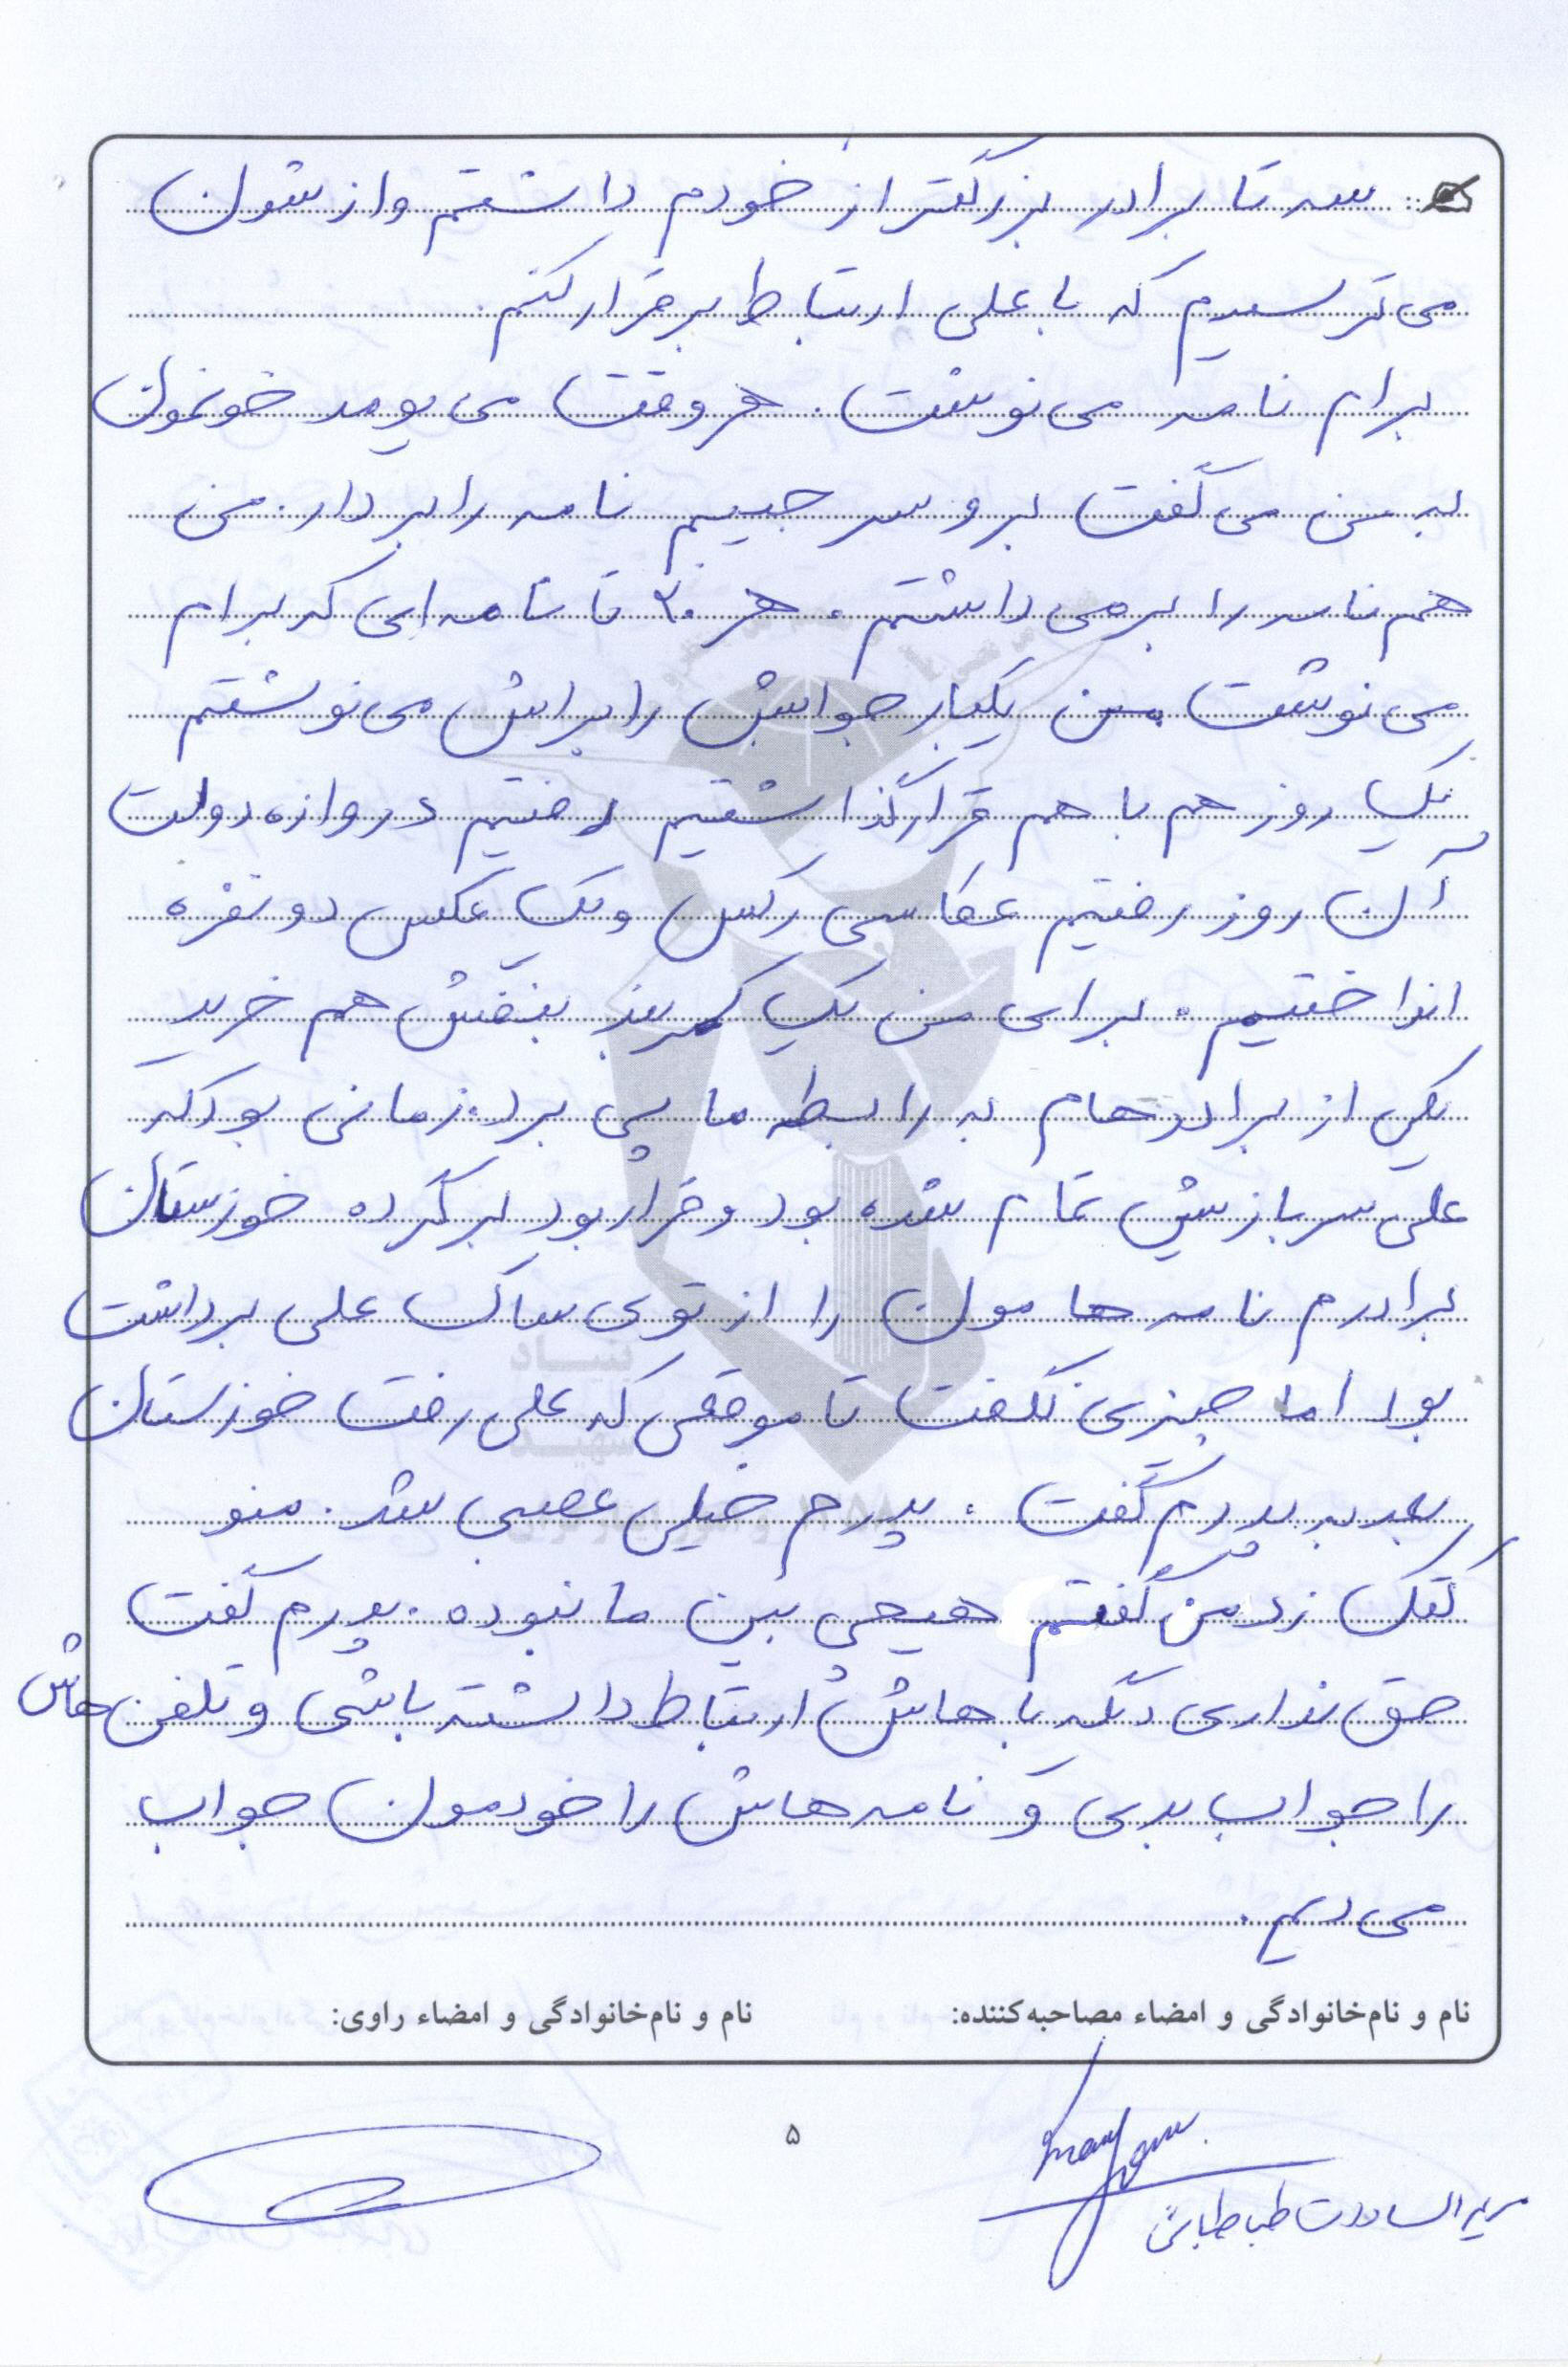 سه تا برادر بزرگتر از خودم داشتم و ازشون
می ترسیدم که با علی ارتباط برقرار کنم.
برام نامه می نوشت. هر وقت می یومد خونمون
به من می گفت برو سر جیبم نامه را بردار. من
هم نامه را برمی داشتم. هر ۲۰ تا نامه ای که برام
می نوشت من یکبار جوابش را برایش می نوشتم
یک روز هم با هم قرار گذاشتیم رفتیم دروازه دولت
آن روز رفتیم عکاسی رکس و یک عکس دو نفره
انداختیم. برای من یک کمربند بنفش هم خرید
یکی از برادرهام به رابطه ما پی برد. زمانی بود که
علی سربازیش تمام شده بود و قرار بود برگرده خوزستان
برادرم نامه هامون را از توی ساک علی برداشت
بود اما چیزی نگفت تا موقعی که علی رفت خوزستان
بعد به پدرم گفت. پدرم خیلی عصبی شد. منو
کتک زد من گفتم هیچی بین ما نبوده. پدرم گفت
حق نداری دیگه باهاش ارتباط داشته باشی و تلفن هاش
را جواب بدی و نامه هاش را خودمون جواب
می دیم.
نام و نام‌خانوادگی و امضاء مصاحبه‌کننده: نام و نام‌خانوادگی و امضاء راوی:
۵
مریم السادات طباطبائی